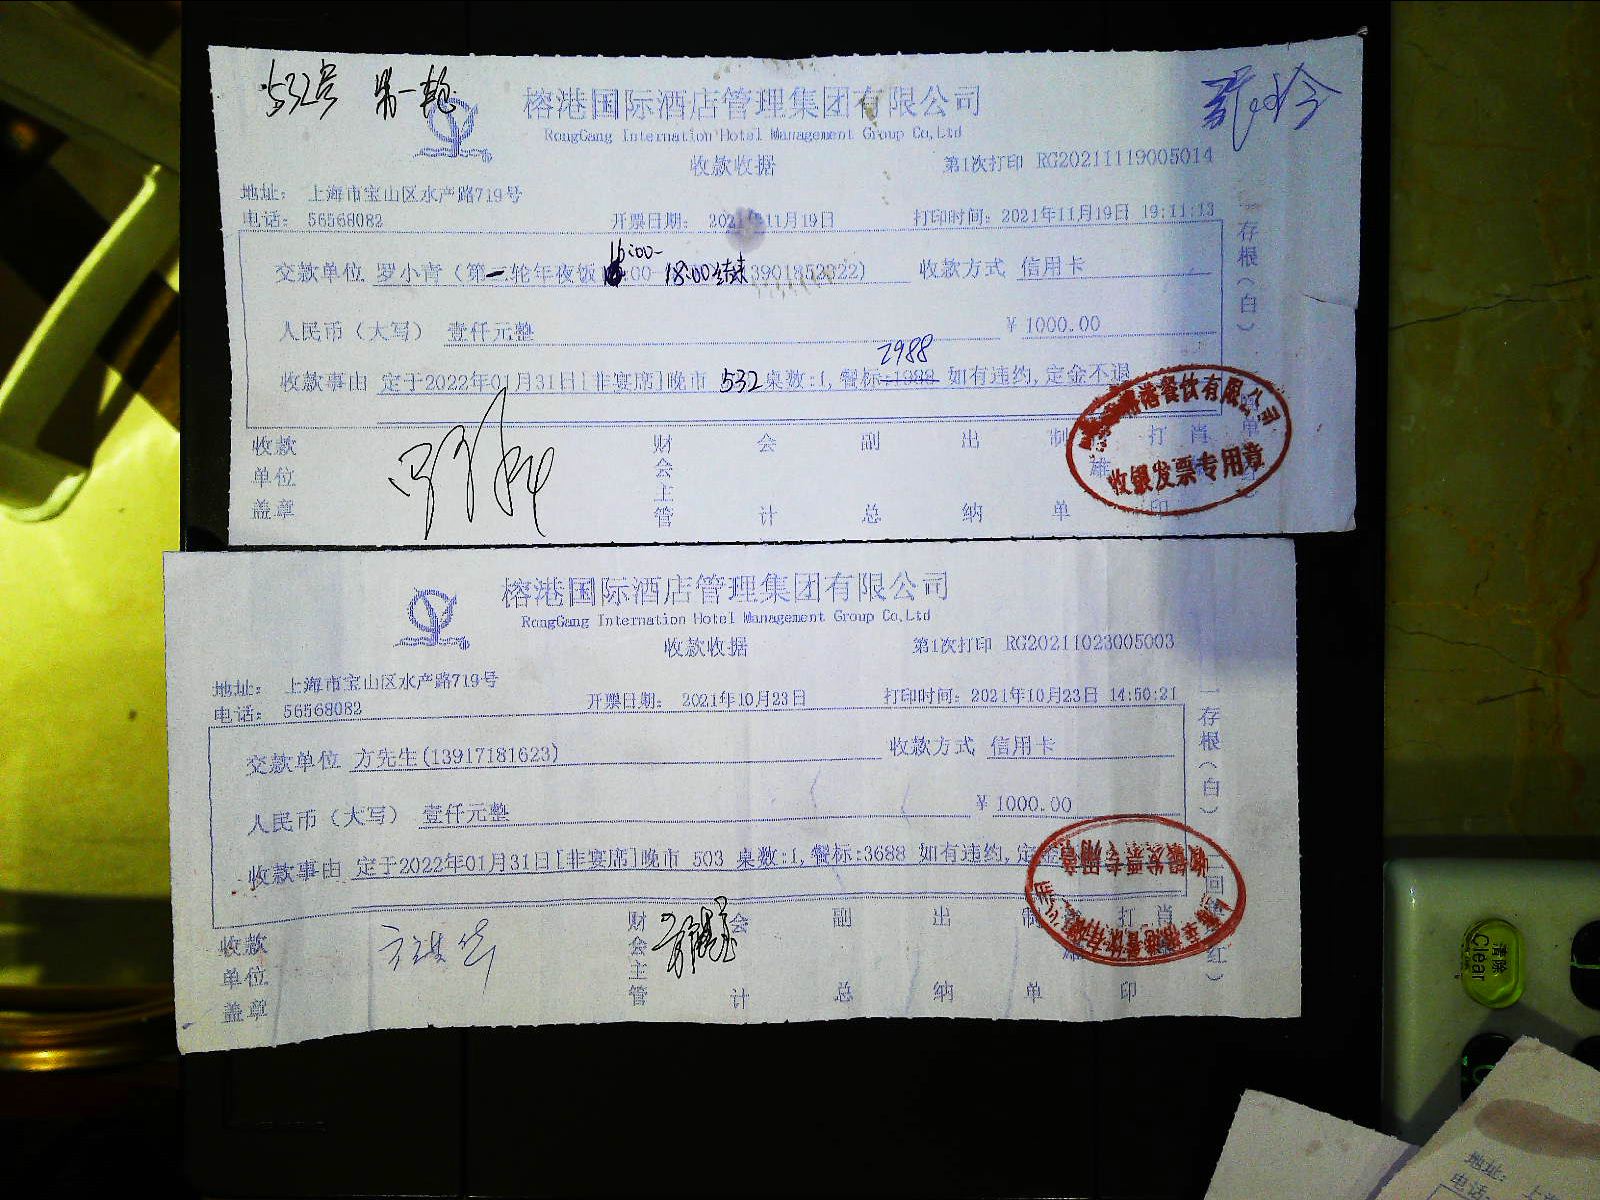 532号 第一轮
榕港国际酒店管理集团有限公司
RongGang Internation Hotel Management Group Co,Ltd
收款收据
第1次打印 RG20211119005014
地址： 上海市宝山区水产路719号
电话： 56568082 开票日期： 2021年11月19日 打印时间：2021年11月19日 19:11:13
16:00-
交款单位 罗小青（第一轮年夜饭 18:00结束 收款方式 信用卡
人民币（大写） 壹仟元整 ￥1000.00
2988
收款事由 定于2022年01月31日[非宴席]晚市 532桌数:1,餐标:1988 如有违约,定金不退
存根（白）
收款 财 会 副 出 制 打 肖
单位 会 雄
盖章 主
管 计 总 纳 单 印
收银发票专用章
榕港国际酒店管理集团有限公司
RongGang Internation Hotel Management Group Co,Ltd
收款收据
第1次打印 RG20211023005003
地址： 上海市宝山区水产路719号
电话： 56568082 开票日期： 2021年10月23日 打印时间：2021年10月23日 14:50:21
交款单位 方先生(13917181623) 收款方式 信用卡
人民币（大写） 壹仟元整 ￥1000.00
收款事由 定于2022年01月31日[非宴席]晚市 503 桌数:1,餐标:3688 如有违约,定金
一存根（白）
收款 财 会 副 出 制 打 肖
单位 会 雄
盖章 主
管 计 总 纳 单 印
收银发票专用章
清除
Clear
地址：
电话